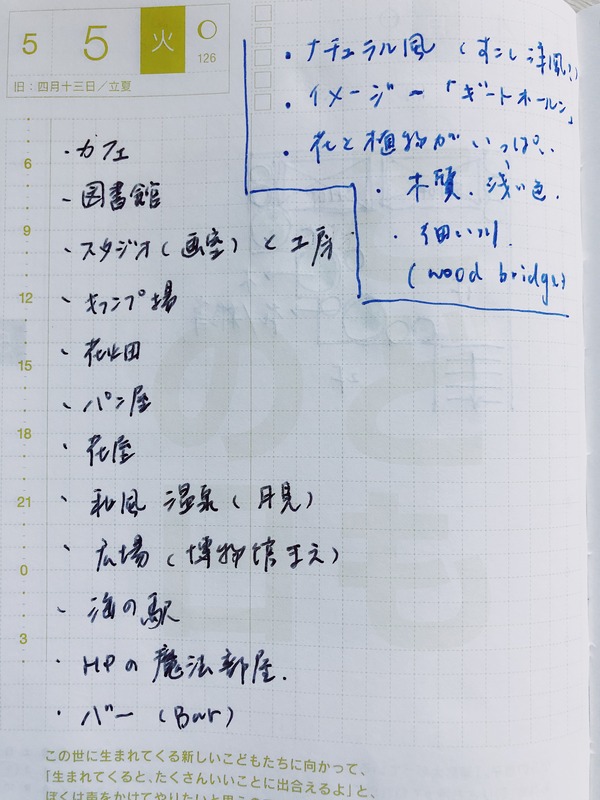 5 5 火 126
旧:四月十三日/立夏
・ナチュラル風(すこし洋風?)
・イメージ〜「ギートホールン」
・花と植物がいっぱい
・木質、浅い色.
・細い川.
(wood bridge)
6
9
12
15
18
21
0
3
・カフェ
・図書館
・スタジオ(画室)と工房
・キャンプ場
・花畑
・パン屋
・花屋
・和風 温泉(月見)
・広場(博物館まえ)
・海の駅
・HPの魔法部屋.
・バー(Bar)
この世に生まれてくる新しいこどもたちに向かって、
「生まれてくると、たくさんいいことに出合えるよ」と、
ぼくは声をかけてやりたいと思